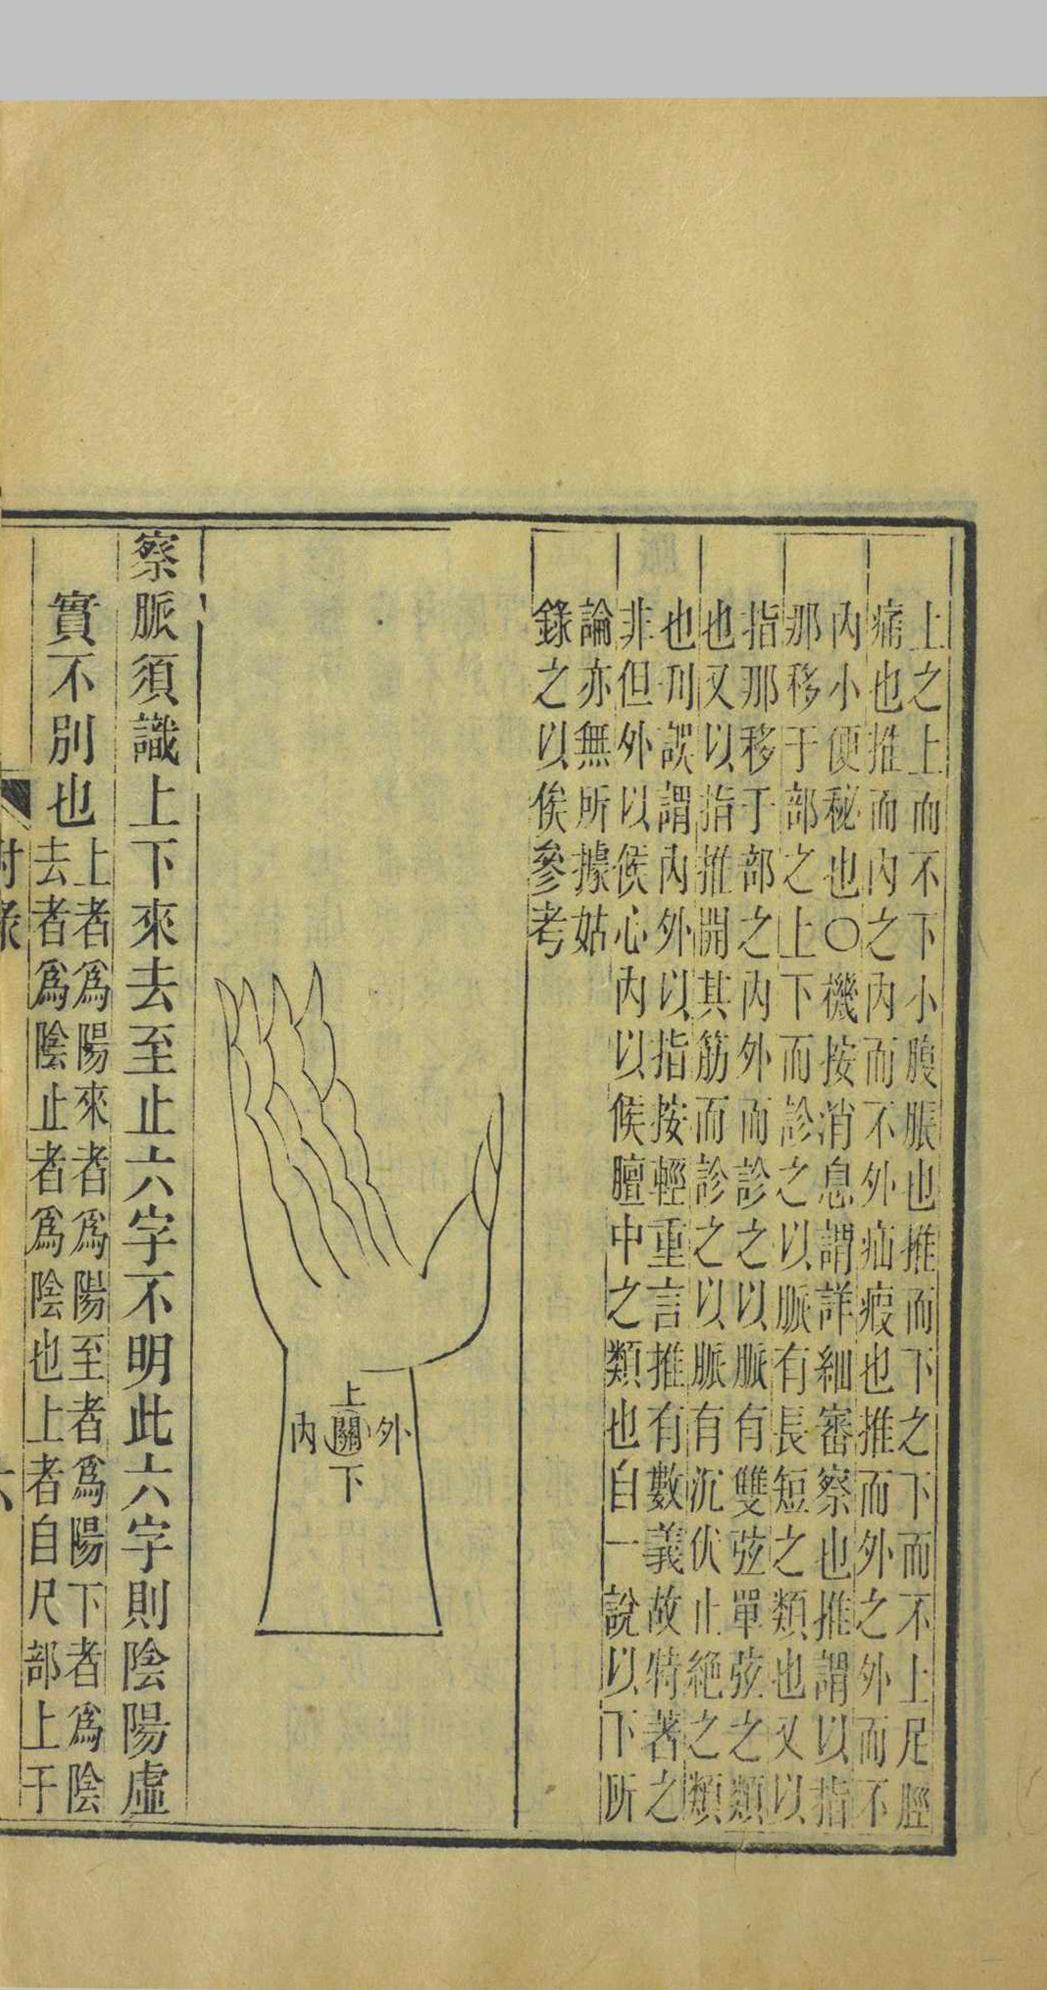 上之上而不下小腹脹也推而下之下而不上足脛
痛也推而內之內而不外疝瘕也推而外之外而不
內小便秘也〇機按消息謂詳細審察也推謂以指
那移于部之上下而診之以脈有長短之類也又以
指那移于部之內外而診之以脈有雙弦單弦之類
也又以指推開其筋而診之以脈有沉伏止絕之類
也刋誤謂內外以指按輕重言推有數義故特著之
非但外以候心內以候膻中之類也自一說以下所
論亦無所據姑
錄之以俟參考
上
內關外
下
察脈須識上下來去至止六字不明此六字則陰陽虛
實不別也
上者爲陽來者爲陽至者爲陽下者爲陰
去者爲陰止者爲陰也上者自尺部上于
付彔
六